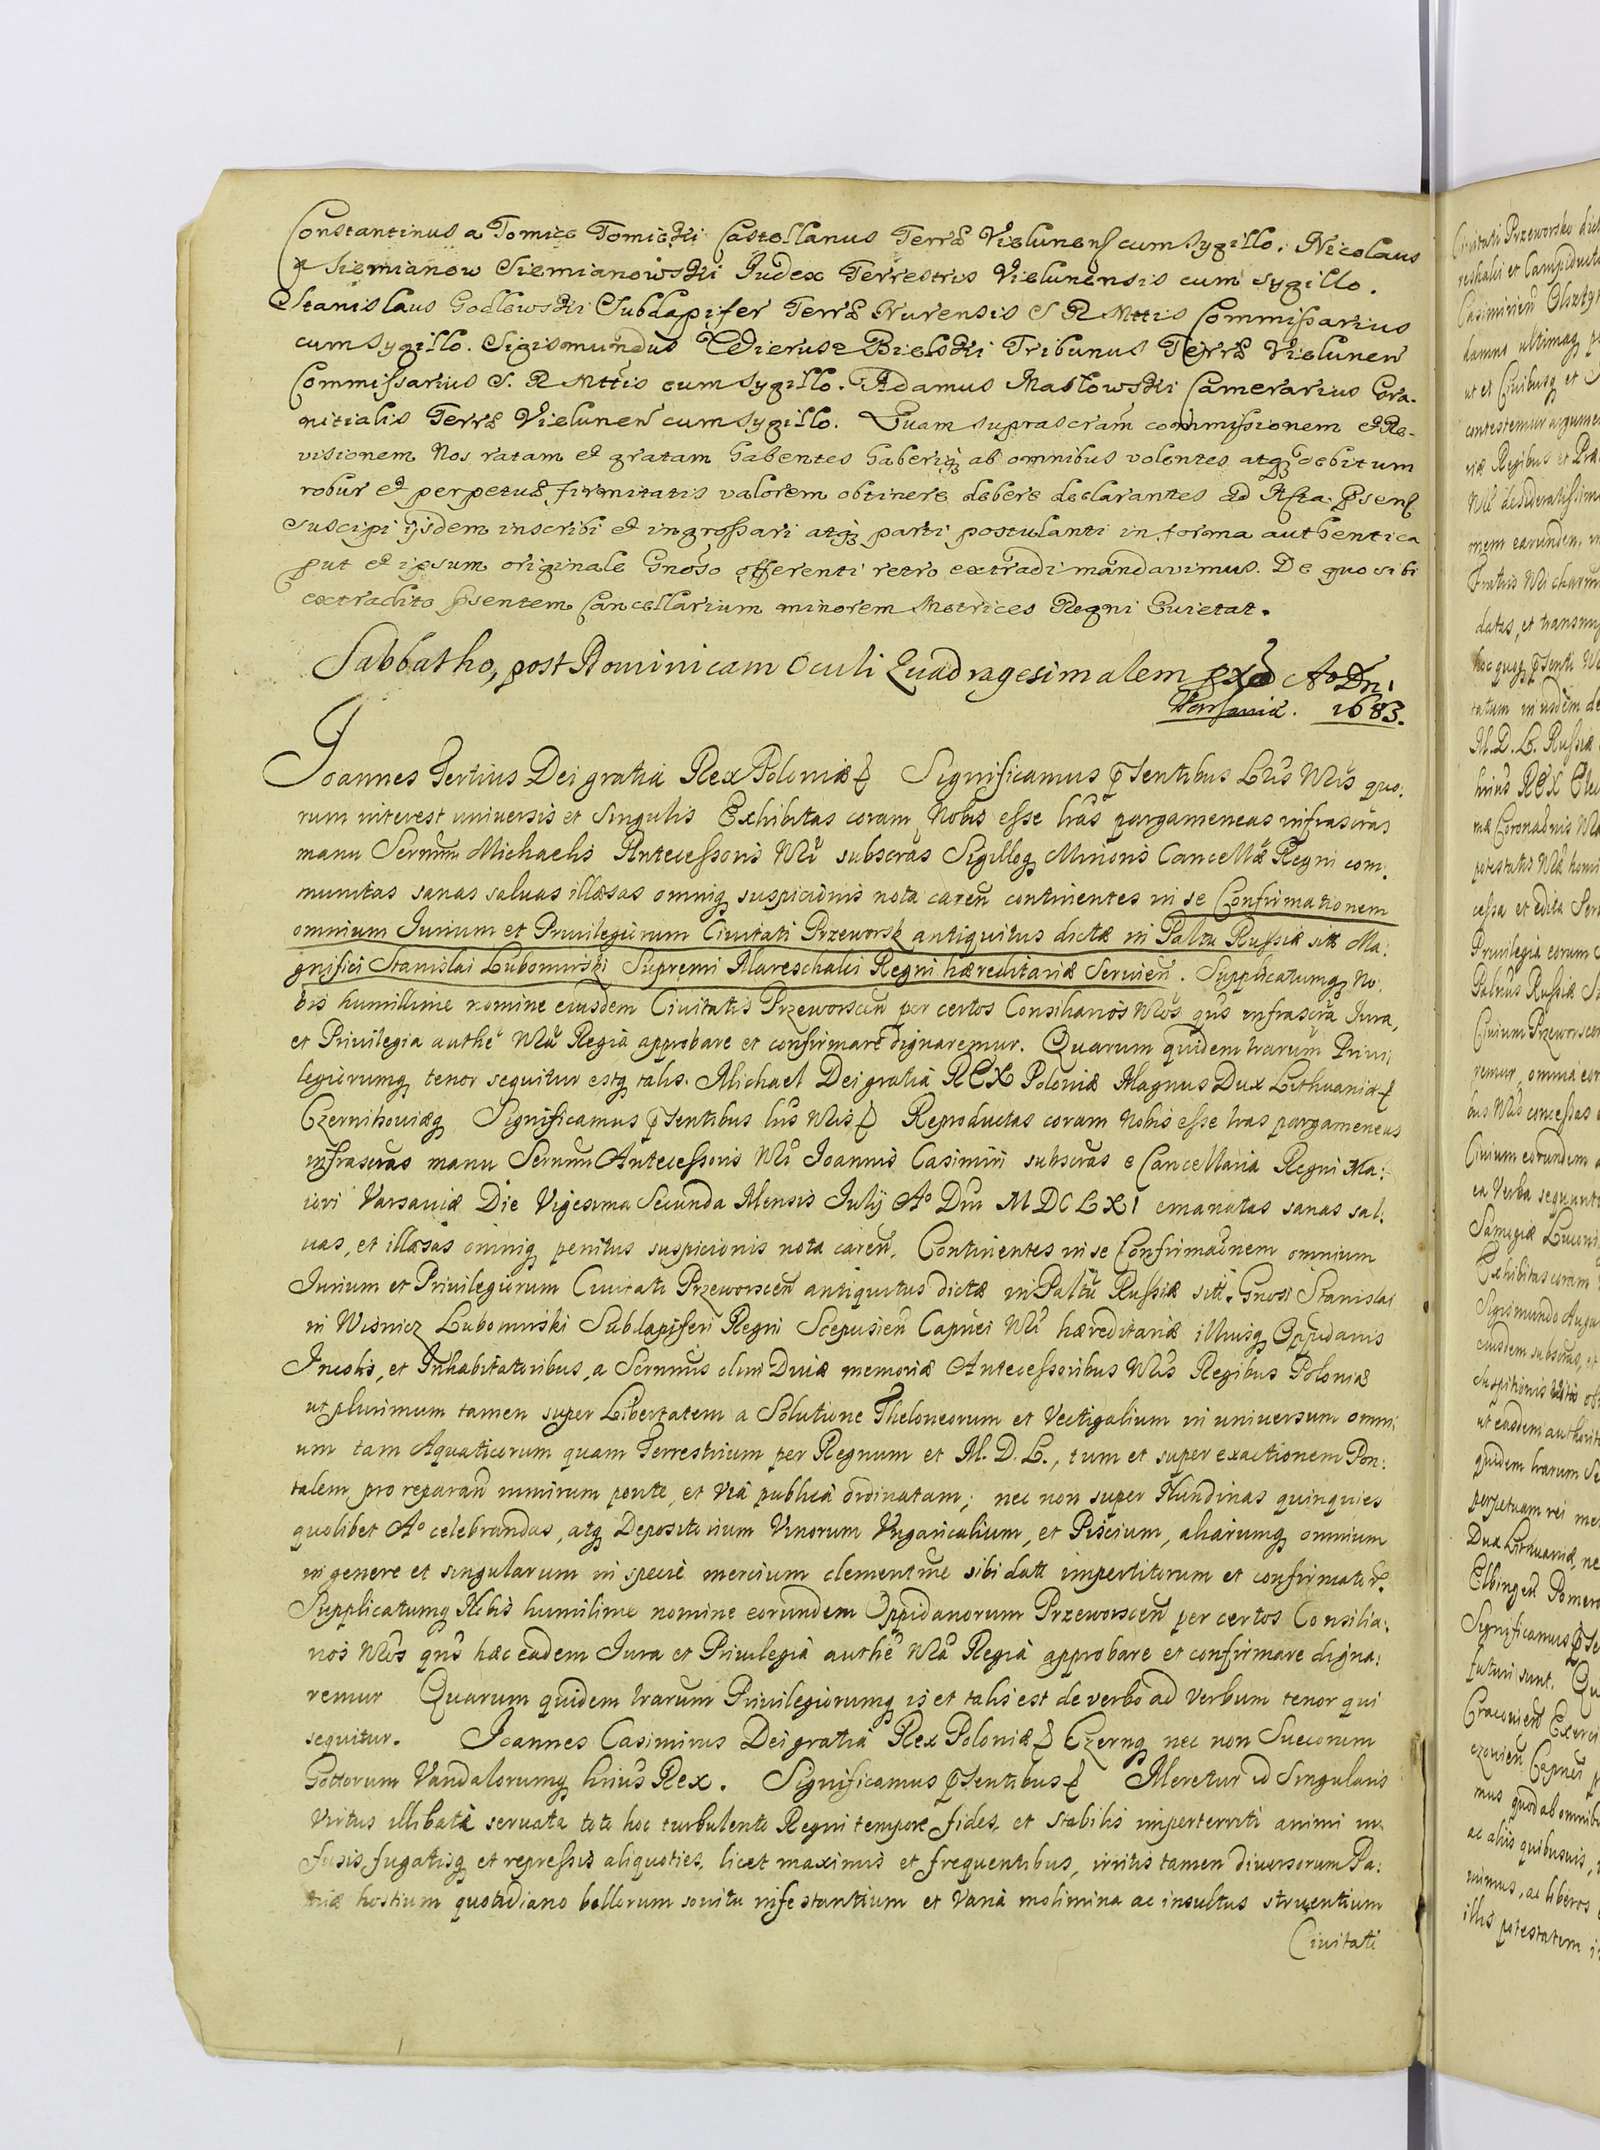 Constantinus a Tomice Tomicki Castellanus Terræ Vielunens cum sygillo. Nicolaus
a Siemianow Siemianowski Iudex Terrestris Vielunensis cum sygillo.
Stanislaus Godlewski Subdapifer Terræ Nurensis S R Mttis Commissarius
cum sygillo. Sigismundus Wierusz Bielski Tribunus Terræ Vielunen
Commissarius S. R Mttis cum sygillo. Adamus Masłowski Camerarius Gra-
nitialis Terræ Vielunen cum sygillo. Quam suprascram commissionem et Re-
visionem Nos ratam et gratam habentes haberiq ab omnibus volentes atq debitum
robur et perpetuæ firmitatis valorem obtinere debere declarantes ad Acta psens
suscipi ijsdem inscribi et ingrossari atq parti postulanti in forma authentica
put et ipsum originale Gnoso offerenti retro extradi mandavimus. De quo sibi
extradito psentem Cancellarium minorem Metrices Regni Quietat.
Sabbatho, post Dominicam Oculi Quadragesimalem Ao Dni
Varsaviæ. 1683.
Joannes Tertius Dei gratiâ Rex Poloniæ & Significamus psentibus Lris Nris quo-
rum interest universis et singulis Exhibitas coram Nobis esse lras pargameneas infrascras
manu Sernmi Michaelis Antecessoris Nri subscras Sigilloq Minoris Cancellæ Regni com-
munitas sanas salvas illæsas omniq suspicionis nota caren continentes in se Confirmationem
omnium Iurium et Privilegiorum Civitati Przeworsk antiquitus dictæ in Paltu Russiæ sitæ Ma-
gnifici Stanislai Lubomirski Supremi Mareschalci Regni hæreditariæ Servien. Supplicatumq No-
bis humillime nomine eiusdem Civitatis Przeworscen per certos Consiliarios Nros qns infrascra Iura,
et Privilegia authe Nra Regiâ approbare et confirmare dignaremur. Quarum quidem lrarum Privi-
legiorumq tenor sequitur estq talis. Michael Dei gratiâ REX Poloniæ Magnus Dux Lithuaniæ &
Czernihoviæq Significamus psentibus lris Nris & Reproductas coram Nobis esse lras pargameneas
infrascras manu Sernmi Antecessoris Nri Ioannis Casimiri subscras e Cancellaria Regni Ma-
iori Varsaviæ Die Vigesima Secunda Mensis Iulij Ao Dni MDCLXI emanatas sanas sal-
vas, et illæsas omniq penitus suspicionis nota caren. Continentes in se Confirmaonem omnium
Iurium et Privilegiorum Civitati Przeworscen antiquitus dictæ in Paltu Russiæ sitt. Gnosi Stanislai
in Wisnicz Lubomirski Subdapiferi Regni Scepusien Capnei Nri hæreditariæ illiusq Oppidanis
Incolis, et Inhabitatoribus, a Sernmis olim Divæ memoriæ Antecessoribus Nris Regibus Poloniæ
ut plurimum tamen super Libertatem a Solutione Theloneorum et Vectigalium in universum omni-
um tam Aquaticorum quam Terrestrium per Regnum et M. D. L., tum et super exactionem Pon-
talem pro reparan nimirum ponte, et viâ publicâ ordinatam; nec non super Nundinas quinquies
quolibet Ao celebrandas, atq Depositorium Vinorum Vngaricalium, et Piscium, aliarumq omnium
in genere et singularum in specie mercium clementme sibi datt impertitorum et confirmator.
Supplicatumq Nobis humilime nomine eorundem Oppidanorum Przeworscen per certos Consilia-
rios Nros qns hæc eadem Iura et Privilegia authe Nra Regiâ approbare et confirmare digna-
remur Quarum quidem lrarum Privilegiorumq is et talis est de verbo ad verbum tenor qui
sequitur. Joannes Casimirus Dei gratiâ Rex Poloniæ & Czernq nec non Suecorum
Gottorum Vandalorumq hrius Rex. Significamus psentibus & Meretur id Singularis
Virtus illibatâ servata toto hoc turbulento Regni tempore fides, et stabilis imperterriti animi in
fusis, fugatisq et repressis aliquoties, licet maximis et frequentibus, irritis tamen diversorum Pa-
triæ hostium quotidiano bellorum sonitu infestantium et varia molimina ac insultus struentium
Civitati